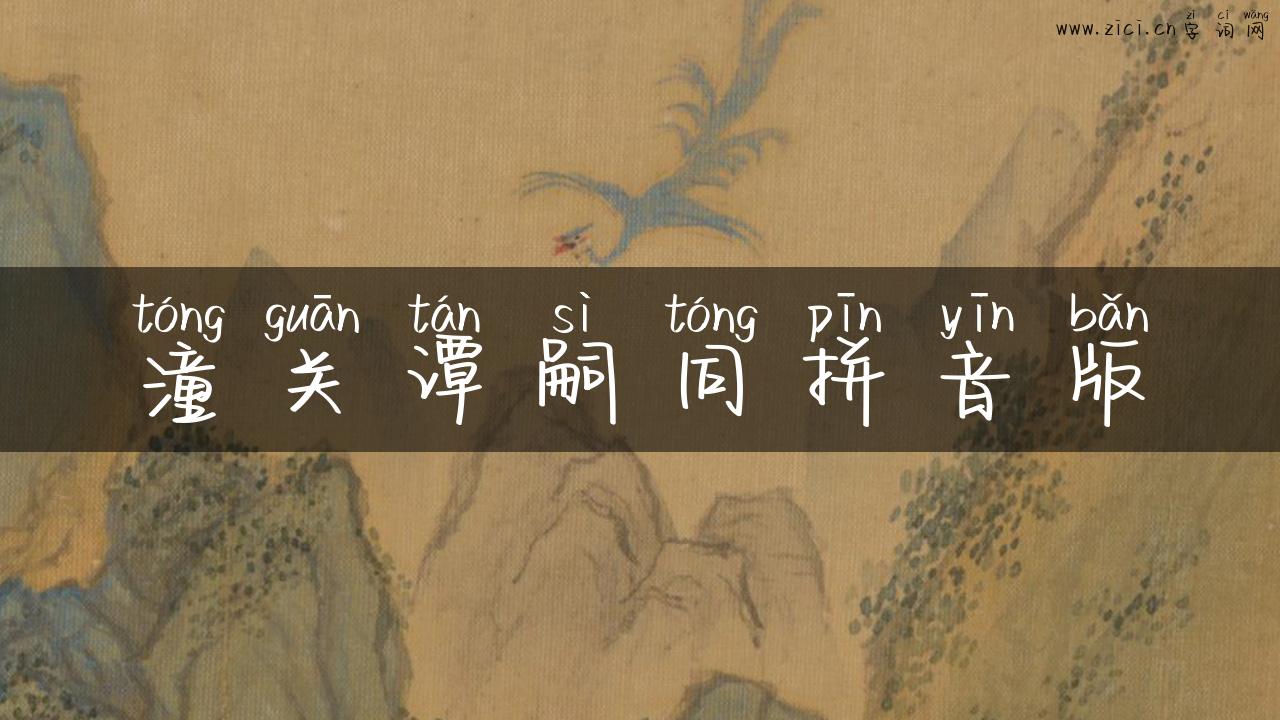 zì cí wǎng
www.zici.cn字词网
tóng guān tán sì tóng pīn yīn bǎn
潼关谭嗣同拼音版